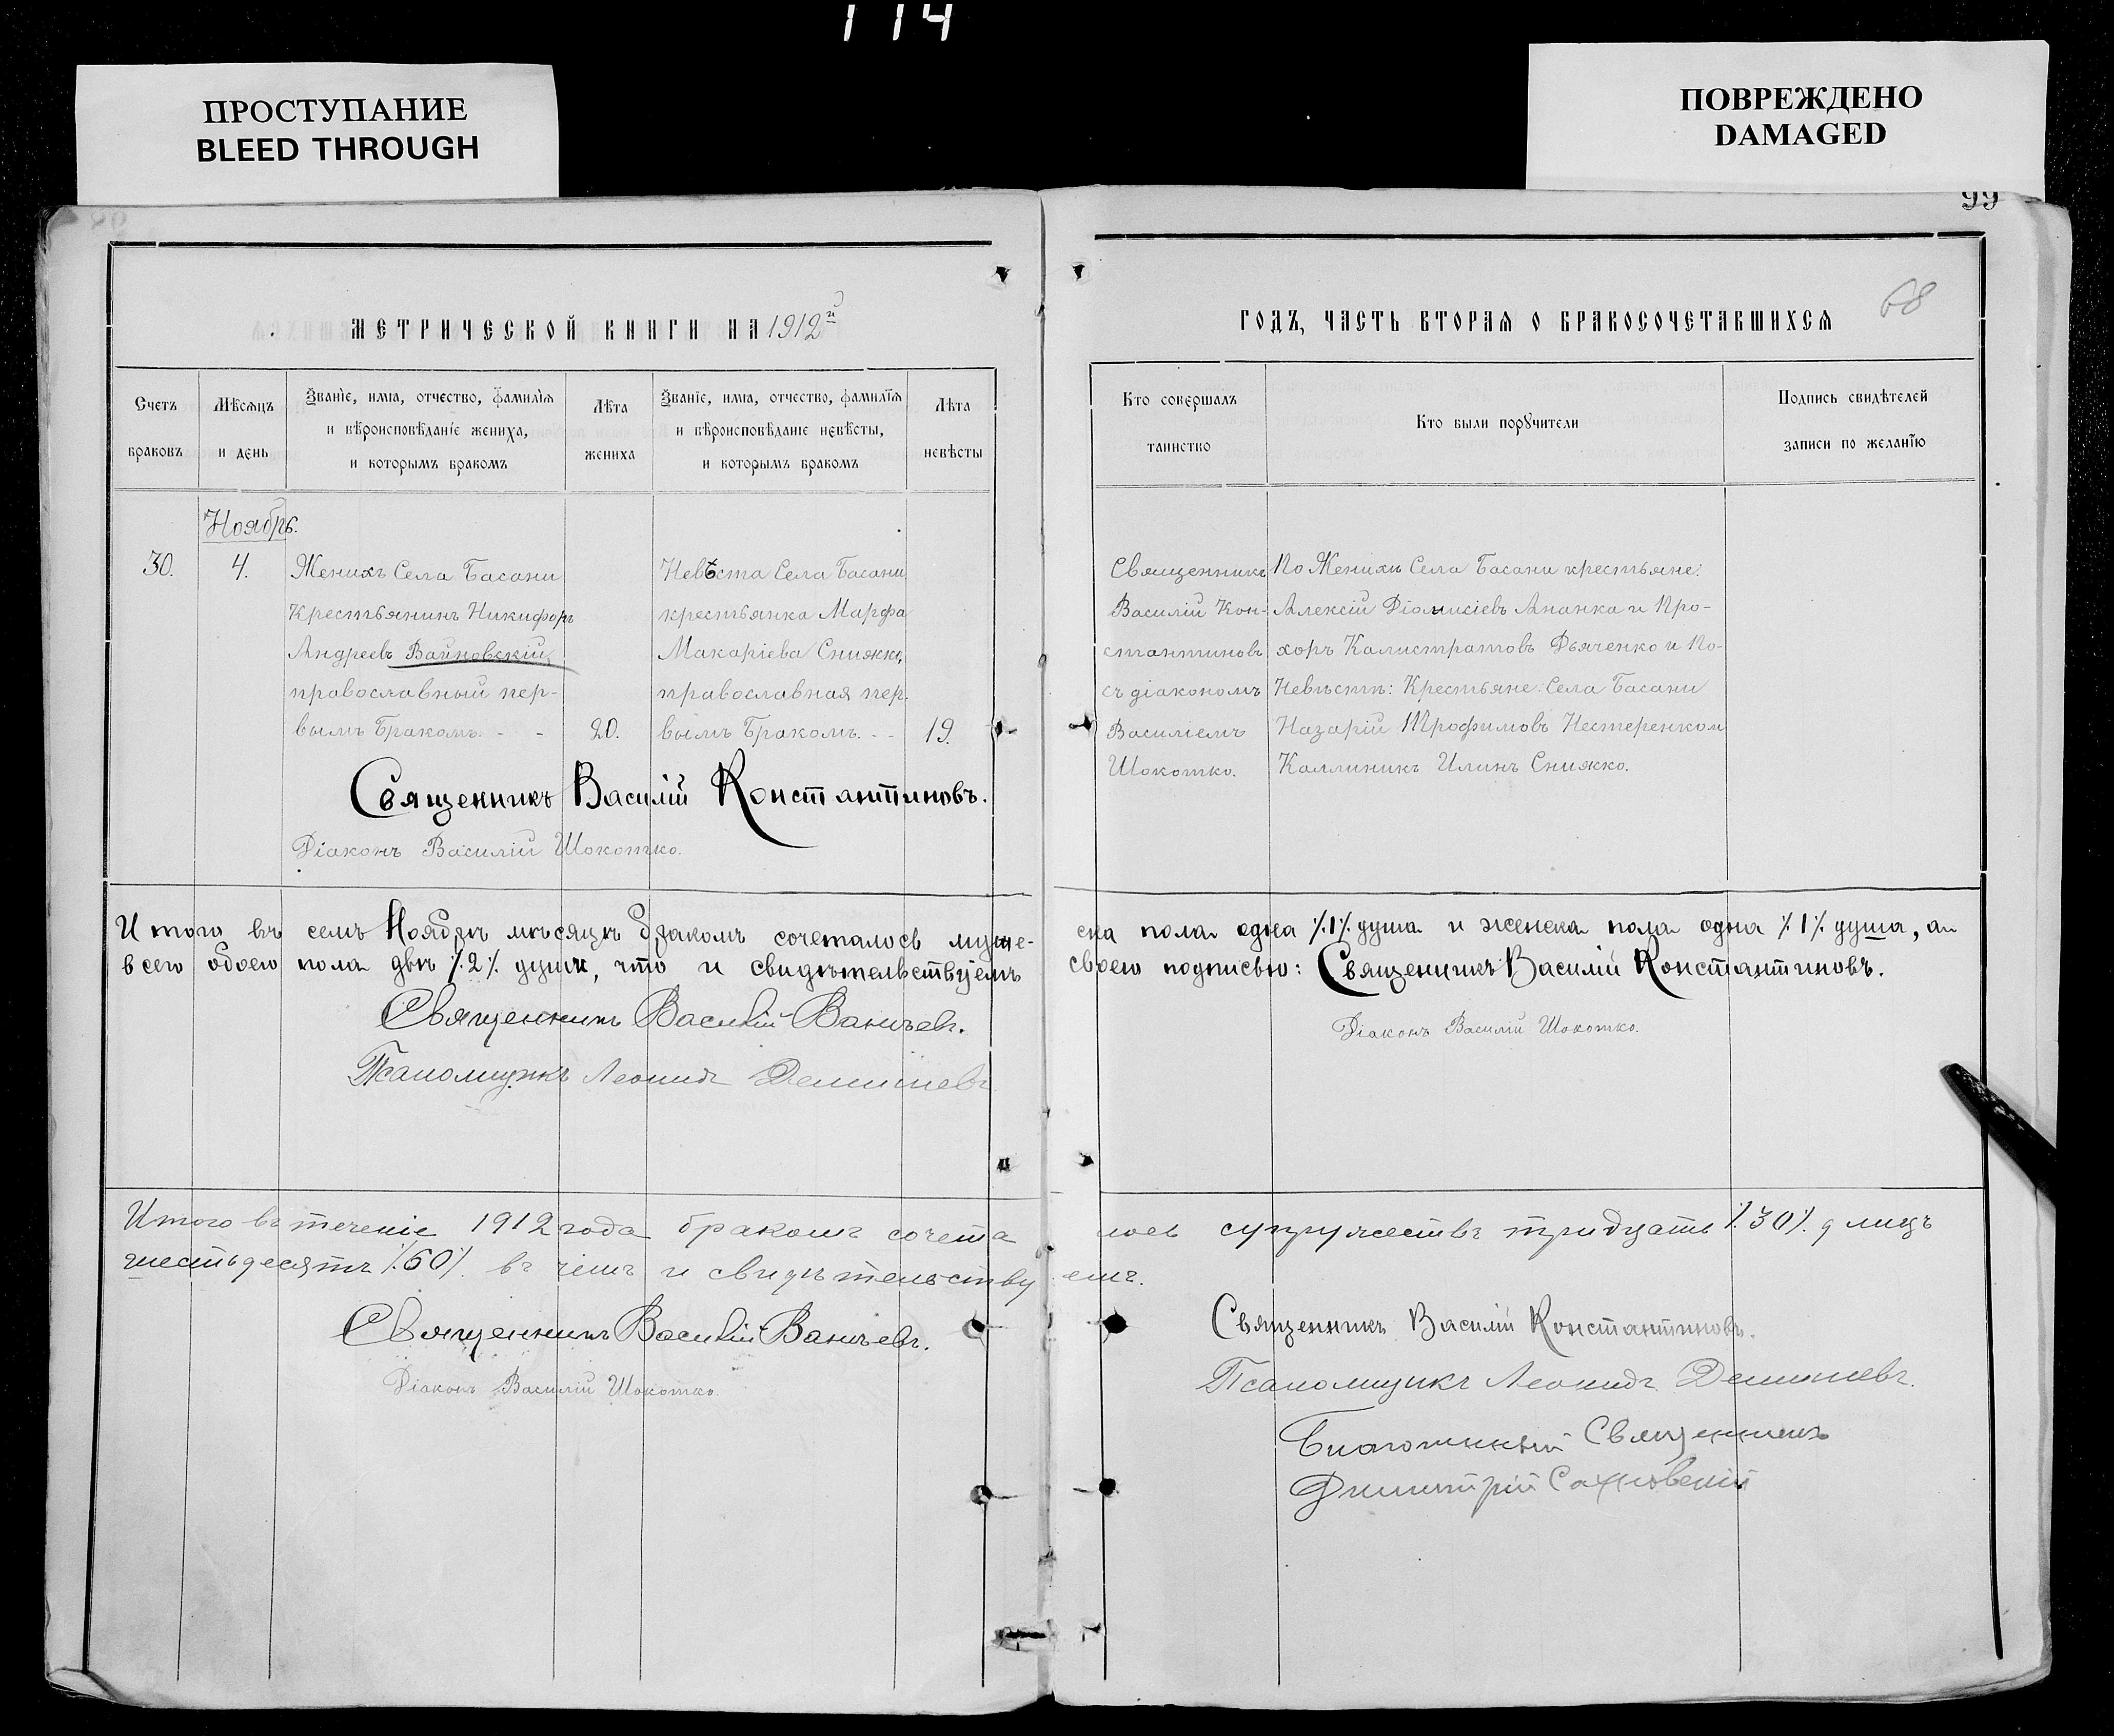 114
ПРОСТУПАНИЕ
BLEED THROUGH
ПОВРЕЖДЕНО
DAMAGED
99
68
МЕТРИЧЕСКОЙ КНИГИ НА 1912й
Счетъ браковъ
Мѣсяцъ и день
Званіе, имя, отчество, фамилія
и вѣроисповѣданіе жениха,
и которымъ бракомъ
Лѣта жениха
Званіе, имя, отчество, фамилія
и вѣроисповѣданіе невѣсты,
и которымъ бракомъ
Лѣта невѣсты
Ноябрь.
30.
4.
Женихъ Села Басани
Крестьянинъ Никифоръ
Андреевъ Войновскій,
православный пер-
вымъ бракомъ. - -
20.
Невѣста Села Басани
крестьянка Марфа
Макаріева Снижко,
православная пер.
вымъ бракомъ. - -
19.
Священникъ Василій Константиновъ.
Діаконъ Василій Шокотко.
Итого въ семъ Ноябрѣ мѣсяцѣ бракомъ сочеталось муже-
всего обоего пола двѣ ⁒2⁒ души, что и свидѣтельствуемъ
Священникъ Василій
Псаломщикъ Леонидъ
Итого въ теченіе 1912 года бракомъ сочета
шестьдесятъ ⁒60⁒ въ чемъ и свидѣтельству
Священникъ Василій
Діаконъ Василій Шокотко.
ГОДЪ, ЧАСТЬ ВТОРАЯ О БРАКОСОЧЕТАВШИХСЯ
Кто совершалъ
таинство
Кто были поручители
Подпись свидѣтелей
записи по желанію
Священникъ
Василій Кон-
стантиновъ
съ діакономъ
Василіемъ
Шокотко.
По Женихѣ Села Басани крестьяне:
Алексій Діонисіевъ Ананка и Про-
хоръ Калистратовъ Дьяченко и По-
Невѣстѣ: Крестьяне Села Басани
Назарій Трофимовъ Нестеренко и
Каллиникъ Илинъ Снижко.
ска пола одна ⁒1⁒ душа и женска пола одна ⁒1⁒ душа, а
своею подписью: Священникъ Василій Константиновъ.
Діаконъ Василій Шокотко.
лось супружествъ тридцать ⁒30⁒ лицъ
емъ.
Священникъ Василій Константиновъ.
Псаломщикъ Леонидъ
Благочинный Священникъ
Димитрій Сахновскій